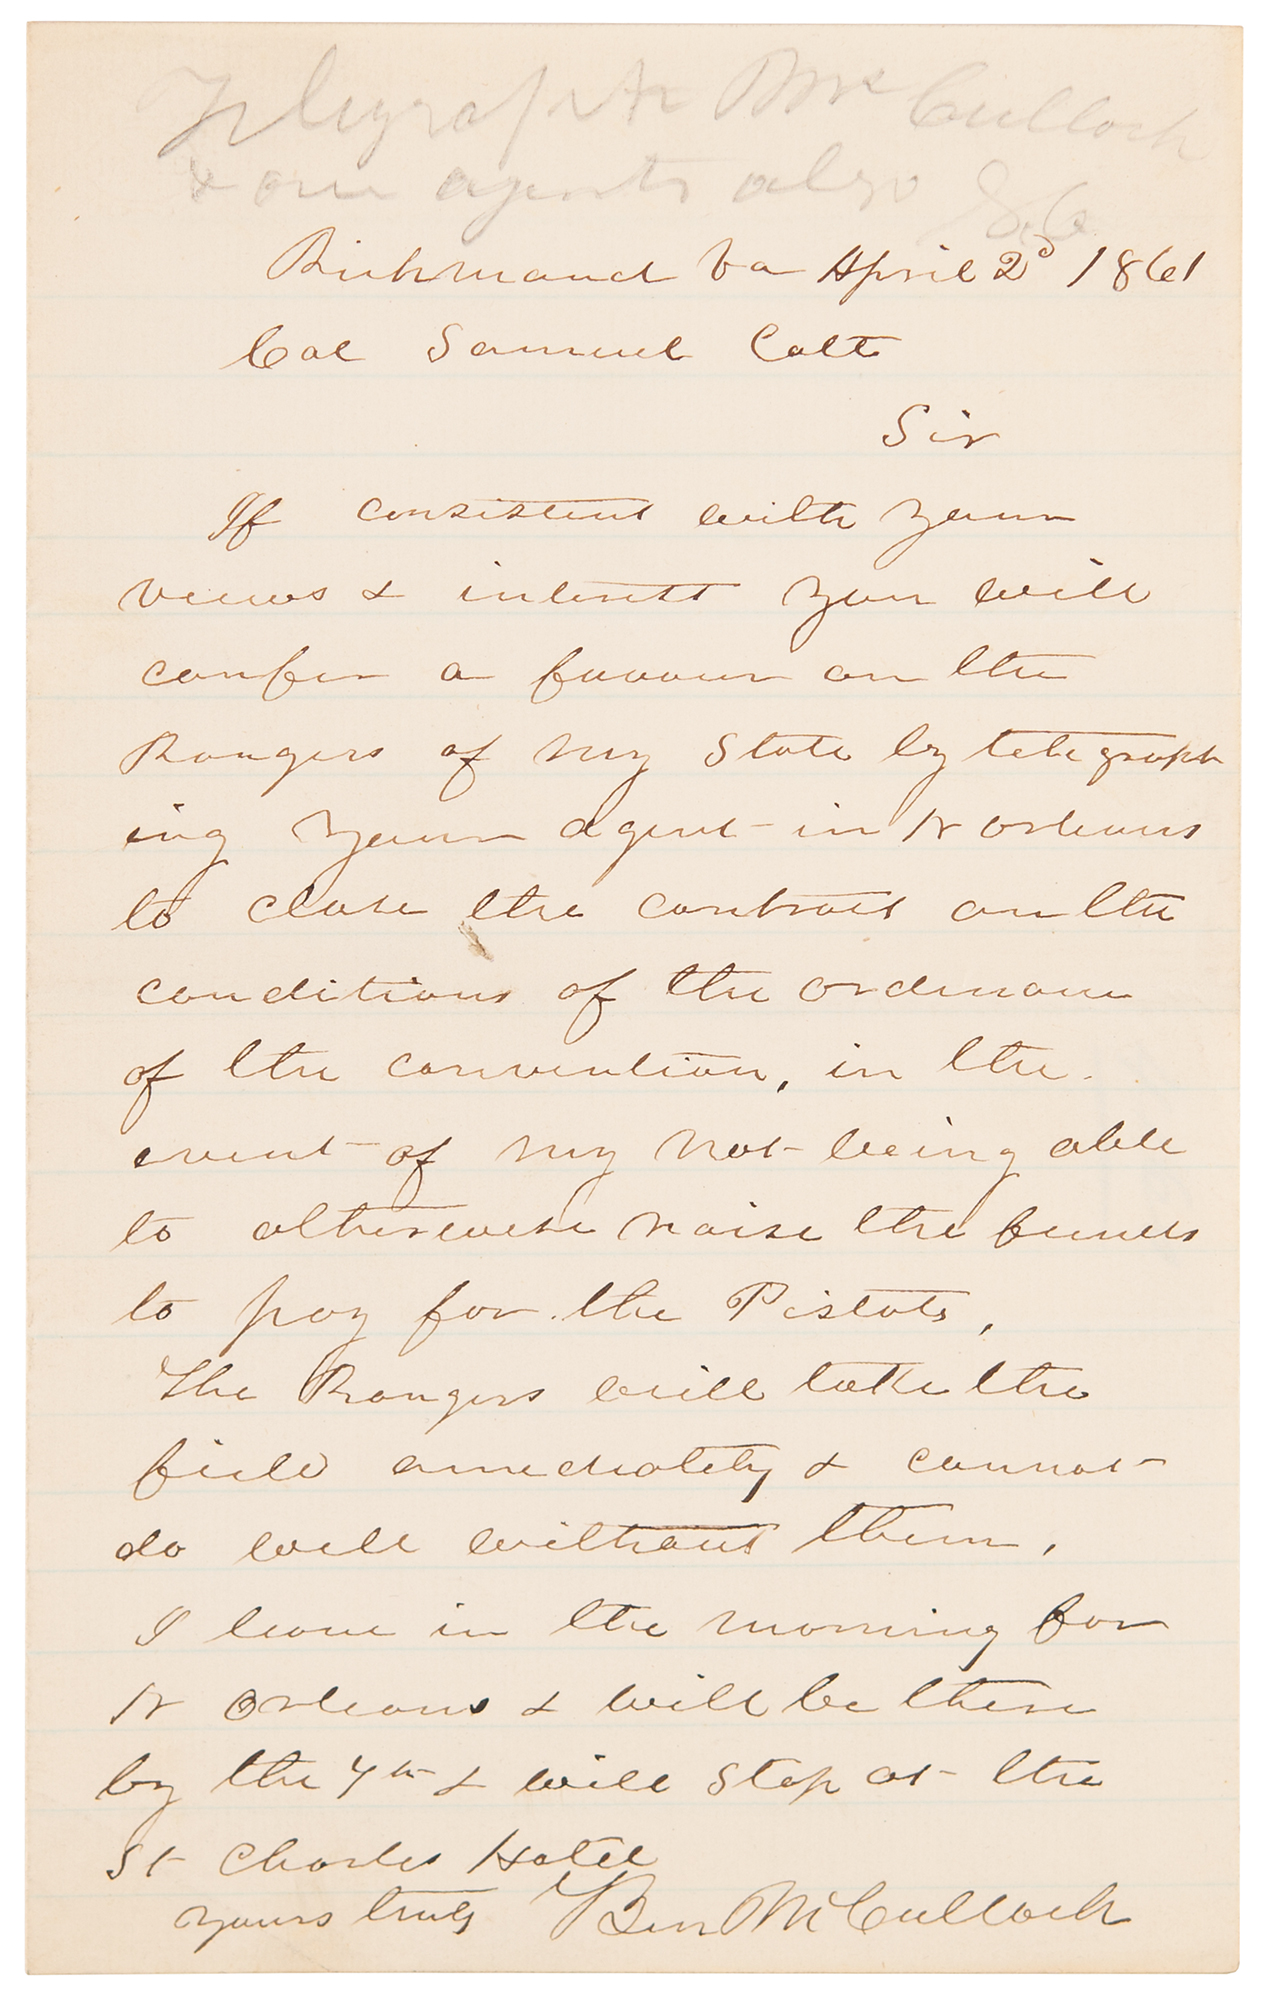 Telegraph to Mr McCulloch
& our agents also SC
Richmond Va April 2d 1861
Col Samuel Colt
Sir
If consistent with your
views & intrestt you will
confer a favour on the
Rangers of my State by telegraph
ing your agent in N Orleans
to close the contract on the
conditions of the ordinance
of the convention, in the
event of my not being able
to otherwise raise the funds
to pay for the Pistols,
The Rangers will take the
field amediately & cannot
do well without them,
I leave in the morning for
N Orleans & will be there
by the 7th & will stop at the
St Charles Hotel
yours truly Ben McCulloch